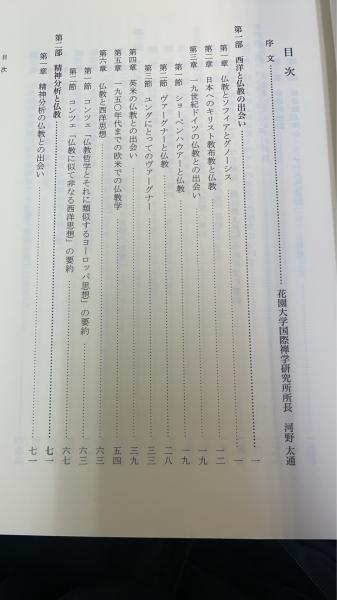 目次
序文……………………花園大学国際禅学研究所所長 河野太通
第一部 西洋と仏教の出会い……………………一
第一章 仏教とソフィアとグノーシス……………………一
第二章 日本へのキリスト教布教と仏教……………………一二
第三章 一九世紀ドイツの仏教との出会い……………………一九
第一節 ショーペンハウアーと仏教……………………一九
第二節 ヴァーグナーと仏教……………………二八
第三節 ユングにとってのヴァーグナー……………………三三
第四章 英米の仏教との出会い……………………三九
第五章 一九五〇年代までの欧米での仏教学……………………五四
第六章 仏教と西洋思想……………………六三
第一節 コンツェ「仏教哲学とそれに類似するヨーロッパ思想」の要約……………………六三
第二節 コンツェ「仏教に似て非なる西洋思想」の要約……………………六七
第二部 精神分析と仏教……………………七一
第一章 精神分析の仏教との出会い……………………七一
目次